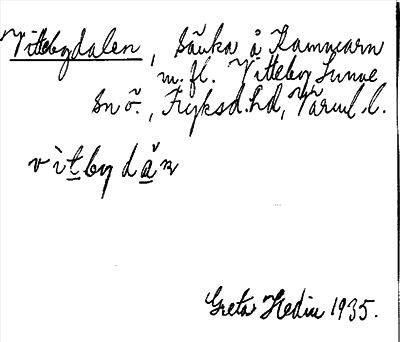 Vittebydalen, Sänka å Kammarn
m.fl. Vitteby Sunne
Sn ö., Fryksd. hd, Värml. l.
vìtby dǎn
Greta Hedin 1935.